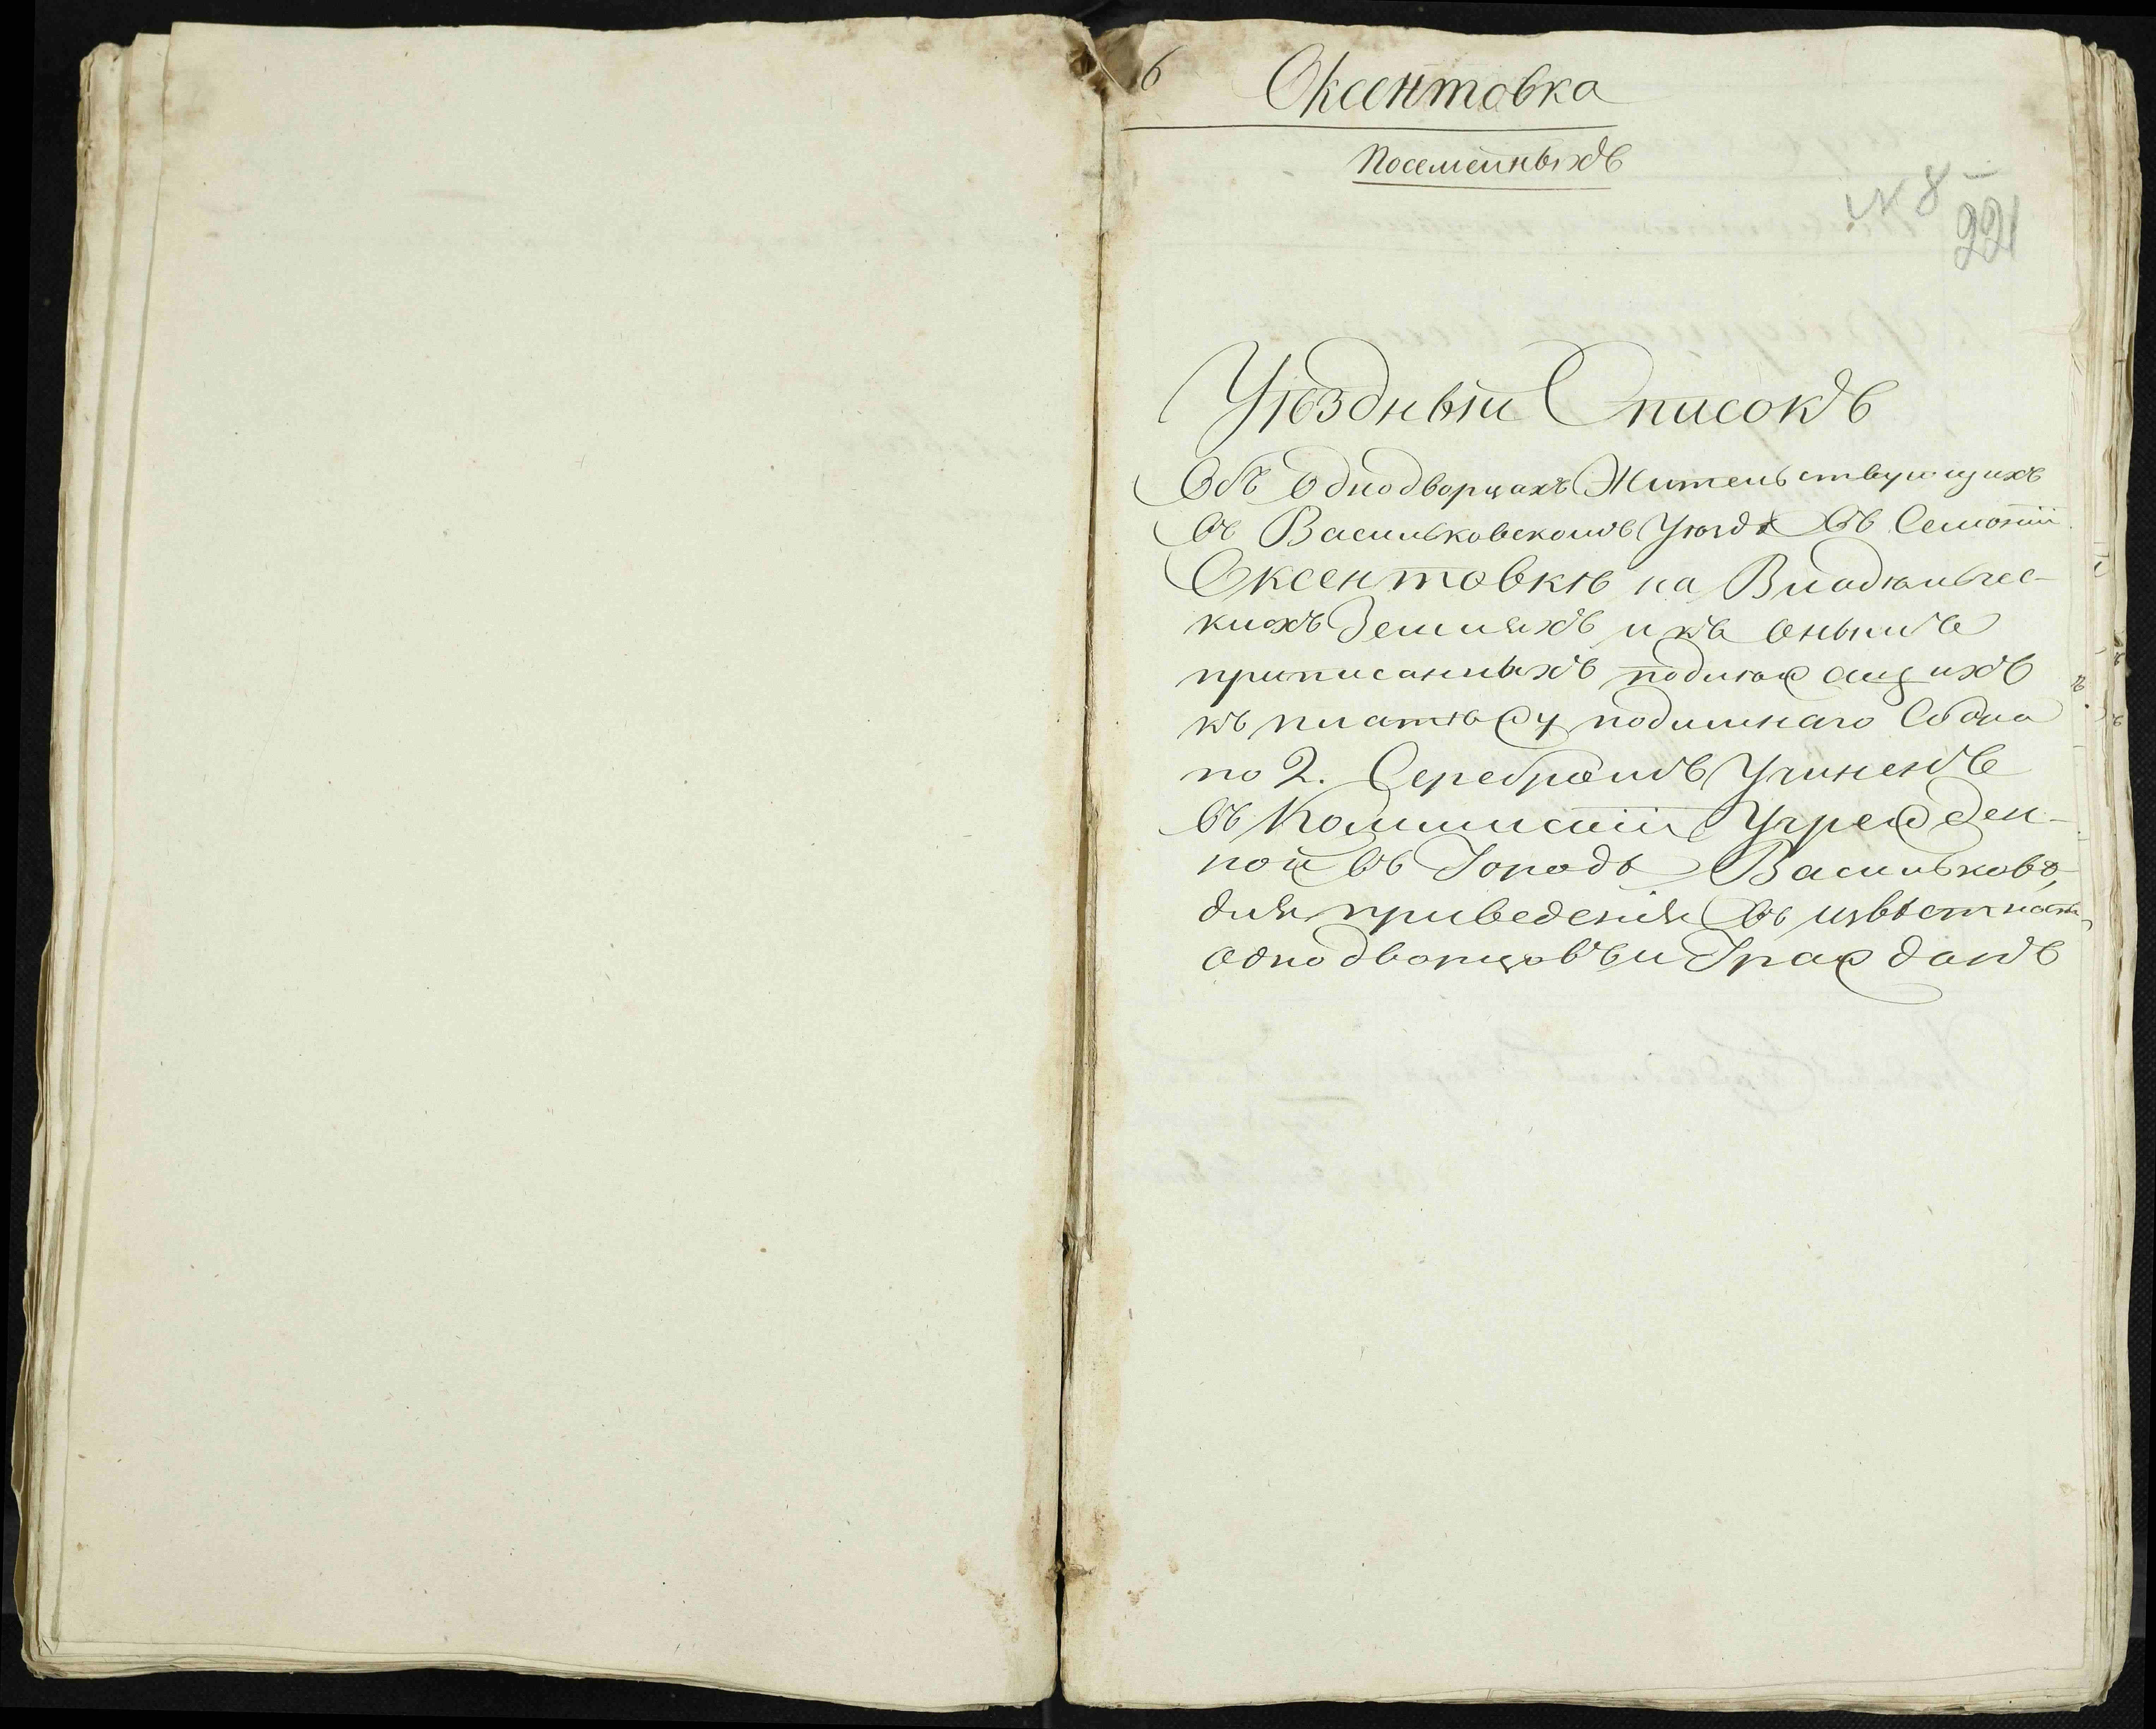 6 Оксентовка
Посемейныхъ
№ 8
221
Уѣздный Списокъ
Объ Однодворцахъ Жительствующихъ
въ Васильковскомъ Уѣздѣ въ Селеніи
Оксентовкѣ на Владѣльчес-
кихъ Земляхъ и къ онымъ
приписанныхъ подлежащихъ
къ платежу подымнаго Сбора
по 2. Серебромъ Учиненъ
въ Коммисіи Учрежден-
ной въ Городѣ Васильковѣ,
для приведенія въ извѣстность
однодворцовъ и Гражданъ